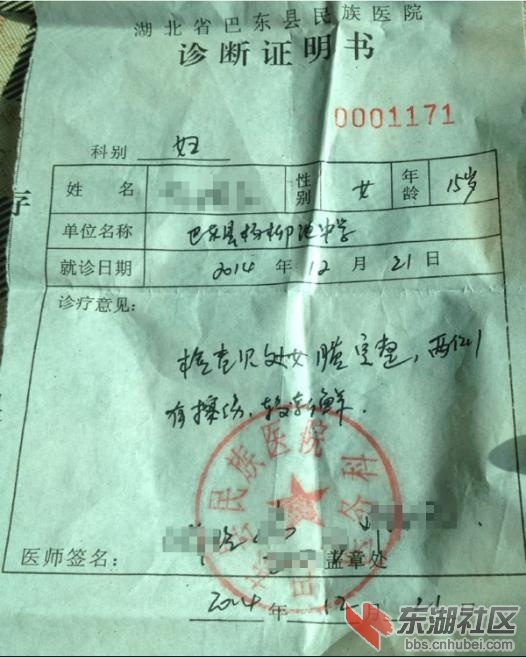 湖北省巴东县民族医院
诊断证明书
0001171
科别 妇
姓名 性别 女 年龄 15岁
单位名称 巴东县杨柳池中学
就诊日期 2014 年 12 月 21 日
诊疗意见:
检查见处女膜完整,两侧
有擦伤,较新鲜.
民族医院
医师签名: 盖章处
2014 年 12 月 21
存
东湖社区
bbs.cnhubei.com